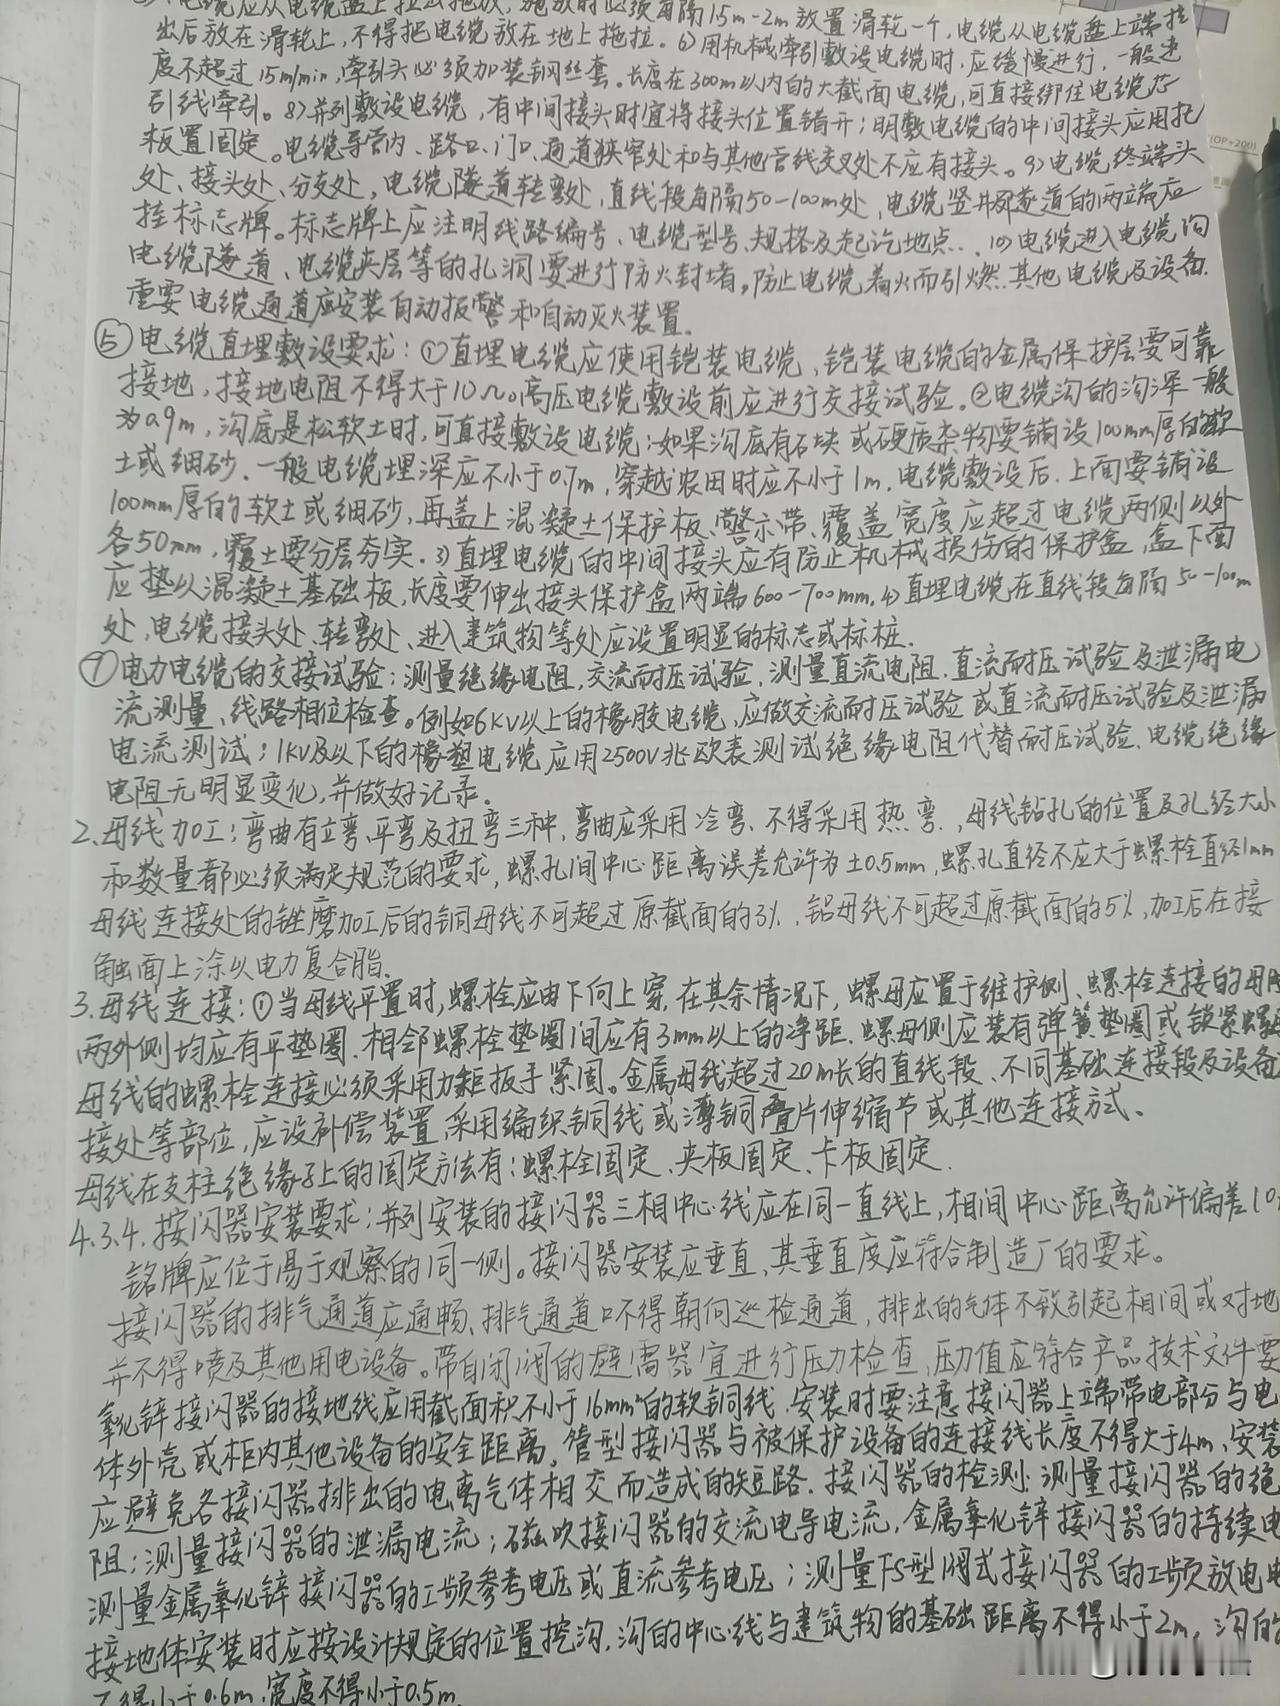 电缆应从电缆盘上拉出拖放，施放时必须每隔1.5m-2m放置滑轮一个，电缆从电缆盘上端拉
出后放在滑轮上，不得把电缆放在地上拖拉。6）用机械牵引敷设电缆时，应缓慢进行，一般速
度不超过15m/min，牵引头必须加装钢丝套。长度在300m以内的大截面电缆，可直接绑住电缆芯
引线牵引。8）并列敷设电缆，有中间接头时宜将接头位置错开；明敷电缆的中间接头应用托
板置固定。电缆导管内、路口、门口、通道狭窄处和与其他管线交叉处不应有接头。9）电缆终端头
处、接头处、分支处，电缆隧道转弯处，直线段每隔50-100m处，电缆竖井及隧道的两端应
挂标志牌。标志牌上应注明线路编号、电缆型号、规格及起讫地点．10）电缆进入电缆沟
电缆隧道、电缆夹层等的孔洞要进行防火封堵，防止电缆着火而引燃其他电缆及设备．
重要电缆通道应安装自动报警和自动灭火装置．
⑤电缆直埋敷设要求：①直埋电缆应使用铠装电缆、铠装电缆的金属保护层要可靠
接地，接地电阻不得大于10Ω。高压电缆敷设前应进行交接试验．②电缆沟的沟深一般
为0.9m，沟底是松软土时，可直接敷设电缆；如果沟底有石块或硬质杂物要铺设100mm厚的软
土或细砂．一般电缆埋深应不小于0.7m，穿越农田时应不小于1m．电缆敷设后．上面要铺设
100mm厚的软土或细砂，再盖上混凝土保护板、警示带、覆盖宽度应超过电缆两侧以外
各50mm，覆土要分层夯实．3）直埋电缆的中间接头应有防止机械损伤的保护盒，盒下面
应垫以混凝土基础板，长度要伸出接头保护盒两端600-700mm．4）直埋电缆在直线段每隔50-100m
处、电缆接头处、转弯处、进入建筑物等处应设置明显的标志或标桩．
⑦电力电缆的交接试验：测量绝缘电阻，交流耐压试验，测量直流电阻．直流耐压试验及泄漏电
流测量、线路相位检查。例如6KV以上的橡胶电缆，应做交流耐压试验或直流耐压试验及泄漏
电流测试；1KV及以下的橡塑电缆应用2500V兆欧表测试绝缘电阻代替耐压试验．电缆绝缘
电阻无明显变化，并做好记录。
2、母线加工：弯曲有立弯、平弯及扭弯三种，弯曲应采用冷弯、不得采用热弯．，母线钻孔的位置及孔径大小
和数量都必须满足规范的要求，螺孔间中心距离误差允许为±0.5mm，螺孔直径不应大于螺栓直径1mm
母线连接处的锉磨加工后的铜母线不可超过原截面的3%．铝母线不可超过原截面的5%，加工后在接
触面上涂以电力复合脂．
3、母线连接：①当母线平置时，螺栓应由下向上穿，在其余情况下，螺母应置于维护侧、螺栓连接的母
两外侧均应有平垫圈，相邻螺栓垫圈间应有3mm以上的净距．螺母侧应装有弹簧垫圈或锁紧螺
母线的螺栓连接必须采用力矩扳手紧固。金属母线超过20m长的直线段、不同基础连接段及设备
接处等部位，应设补偿装置，采用编织铜线或薄铜叠片伸缩节或其他连接方式、
母线在支柱绝缘子上的固定方法有：螺栓固定、夹板固定、卡板固定．
4.3.4．接闪器安装要求：并列安装的接闪器三相中心线应在同一直线上，相间中心距离允许偏差10
铭牌应位于易于观察的同一侧。接闪器安装应垂直，其垂直度应符合制造厂的要求。
接闪器的排气通道应通畅、排气通道口不得朝向巡检通道，排出的气体不致引起相间或对地
并不得喷及其他用电设备。带自闭阀的避离器宜进行压力检查，压力值应符合产品技术文件要
氧化锌接闪器的接地线应用截面积不小于16mm²的软铜线．安装时要注意接闪器上端带电部分与电
体外壳或柜内其他设备的安全距离，管型接闪器与被保护设备的连接线长度不得大于4m，安装
应避免各接闪器排出的电离气体相交而造成的短路．接闪器的检测：测量接闪器的绝
阻；测量接闪器的泄漏电流；磁吹接闪器的交流电导电流，金属氧化锌接闪器的持续电
测量金属氧化锌接闪器的工频参考电压或直流参考电压；测量FS型阀式接闪器的工频放电电
接地体安装时应按设计规定的位置挖沟，沟的中心线与建筑物的基础距离不得小于2m，沟的
不得小于0.6m，宽度不得小于0.5m．
(OP+200)